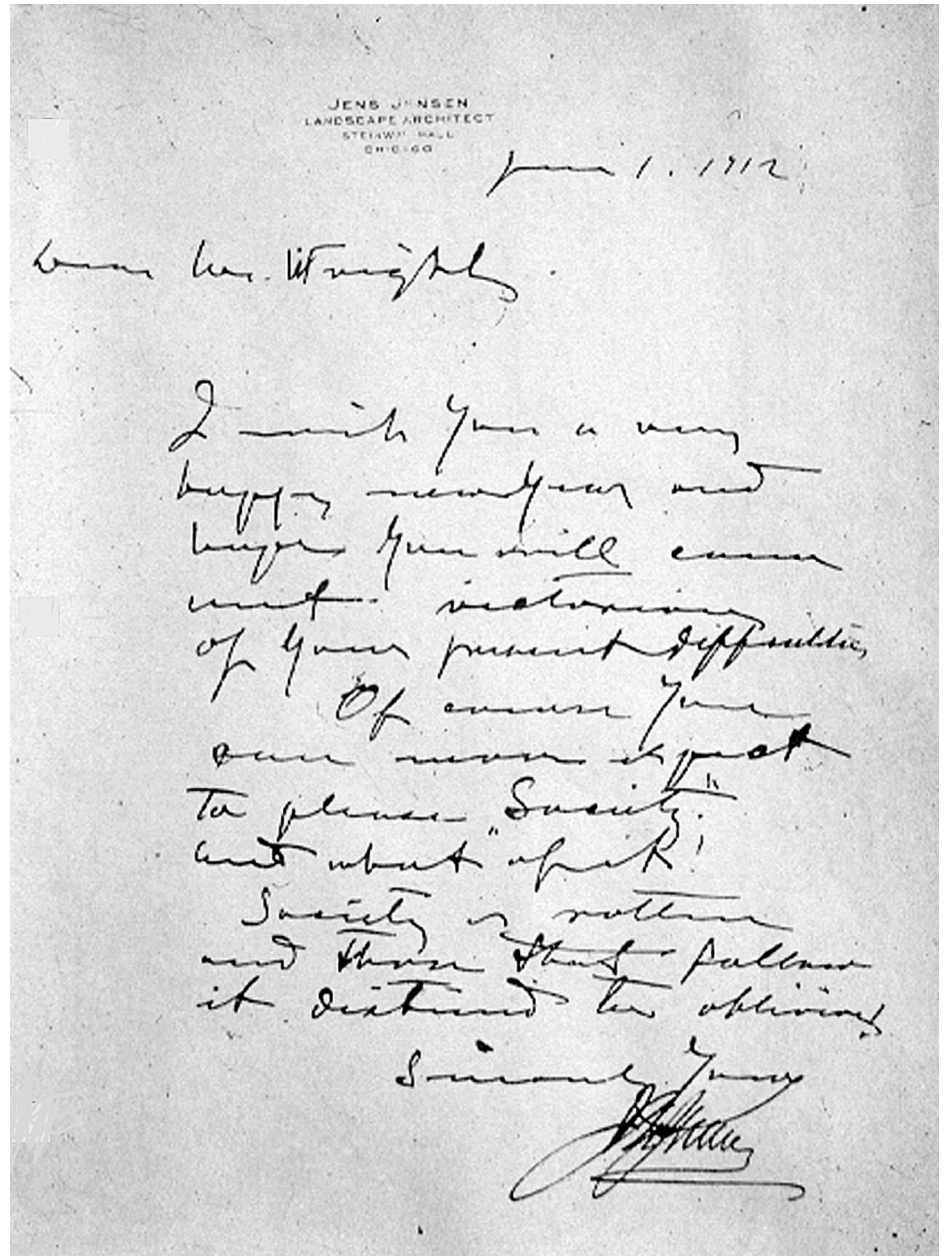 JENS JENSEN
LANDSCAPE ARCHITECT
STEINWAY HALL
CHICAGO
1. 1912
Dear Mr. Wright,
I wish you a very
happy new Year and
hope you will come
out victorious
of your present difficulties
Of course you
can never expect
to please "Society."
and what "of it!
Society is rotten
and those that follow
it distend to oblivion.
Sincerely Yours
Jens Jensen